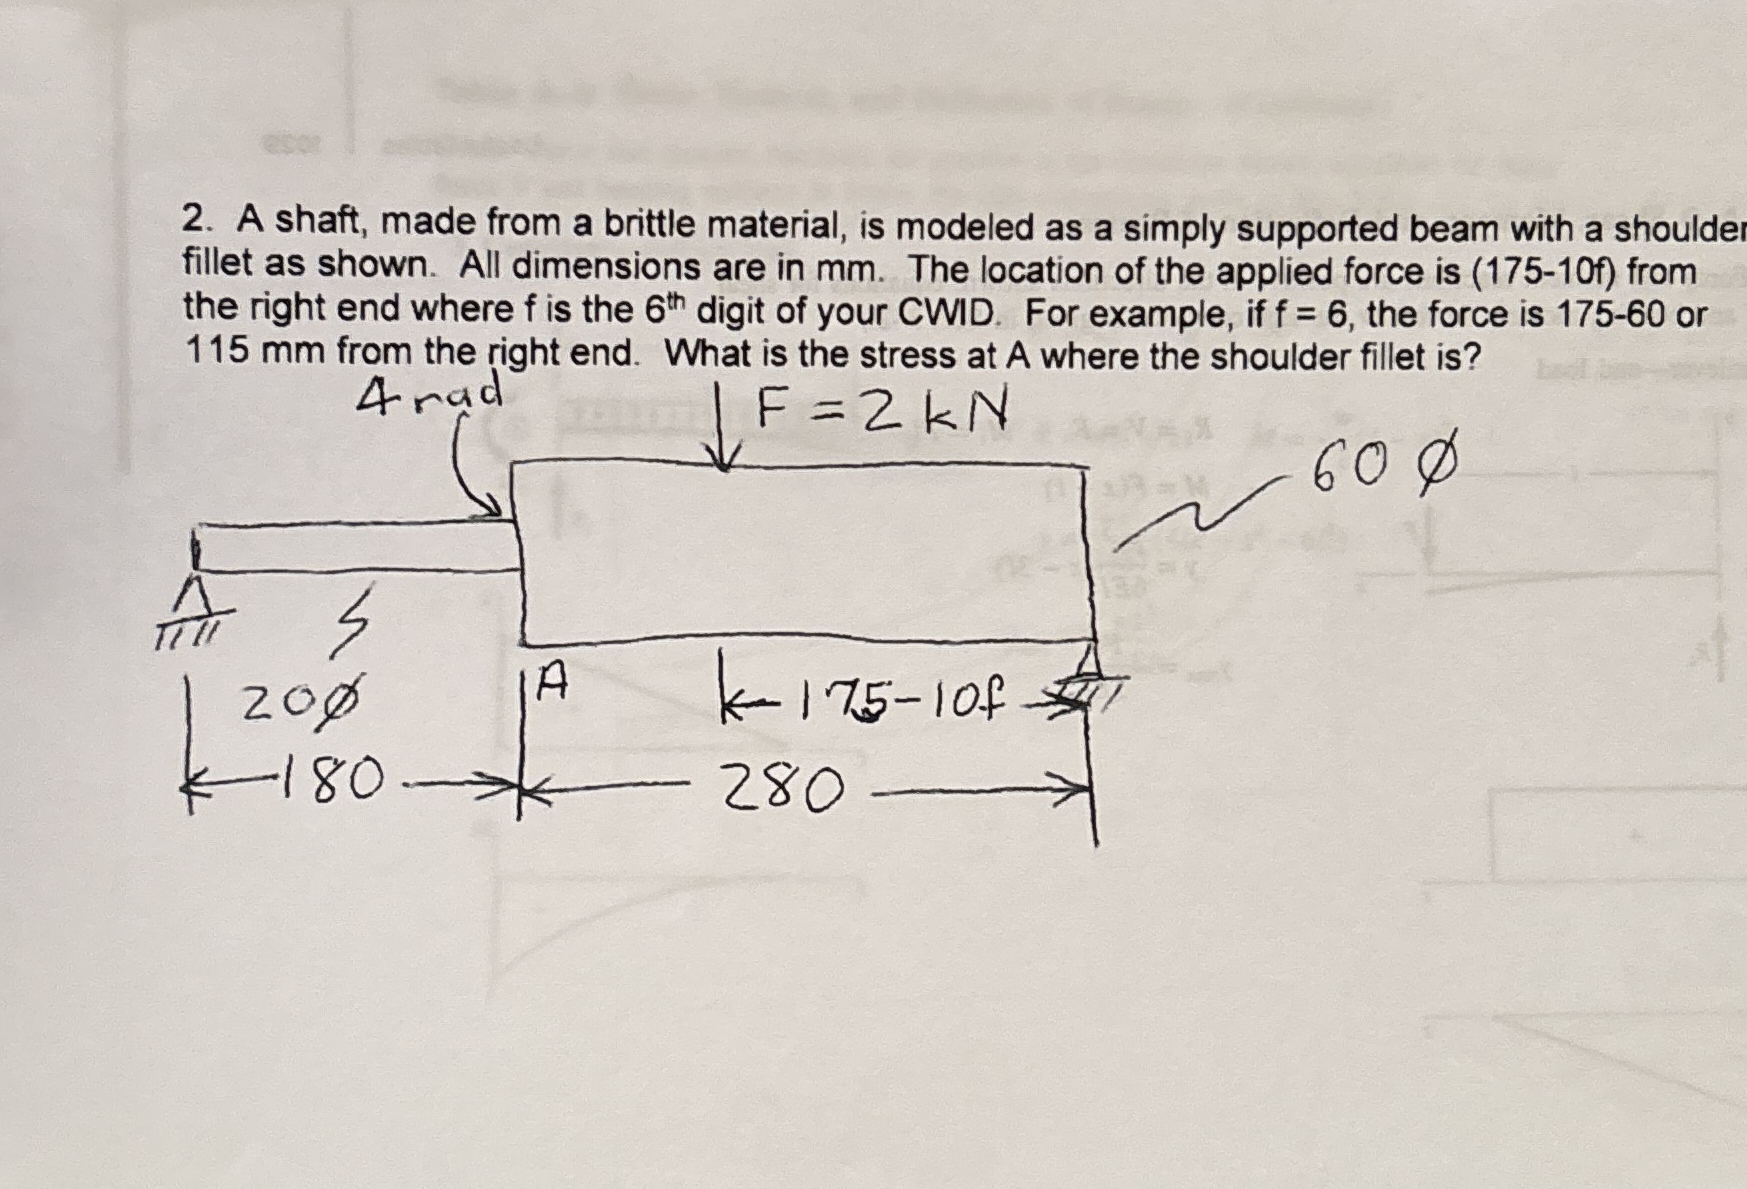 2. A shaft, made from a brittle material, is modeled as a simply supported beam with a shoulder
fillet as shown. All dimensions are in mm. The location of the applied force is (175-10f) from
the right end where f is the 6th digit of your CWID. For example, if f = 6, the force is 175-60 or
115 mm from the right end. What is the stress at A where the shoulder fillet is?
4 rad
F = 2 kN
60 Ø
20Ø
A
175-10f
180
280